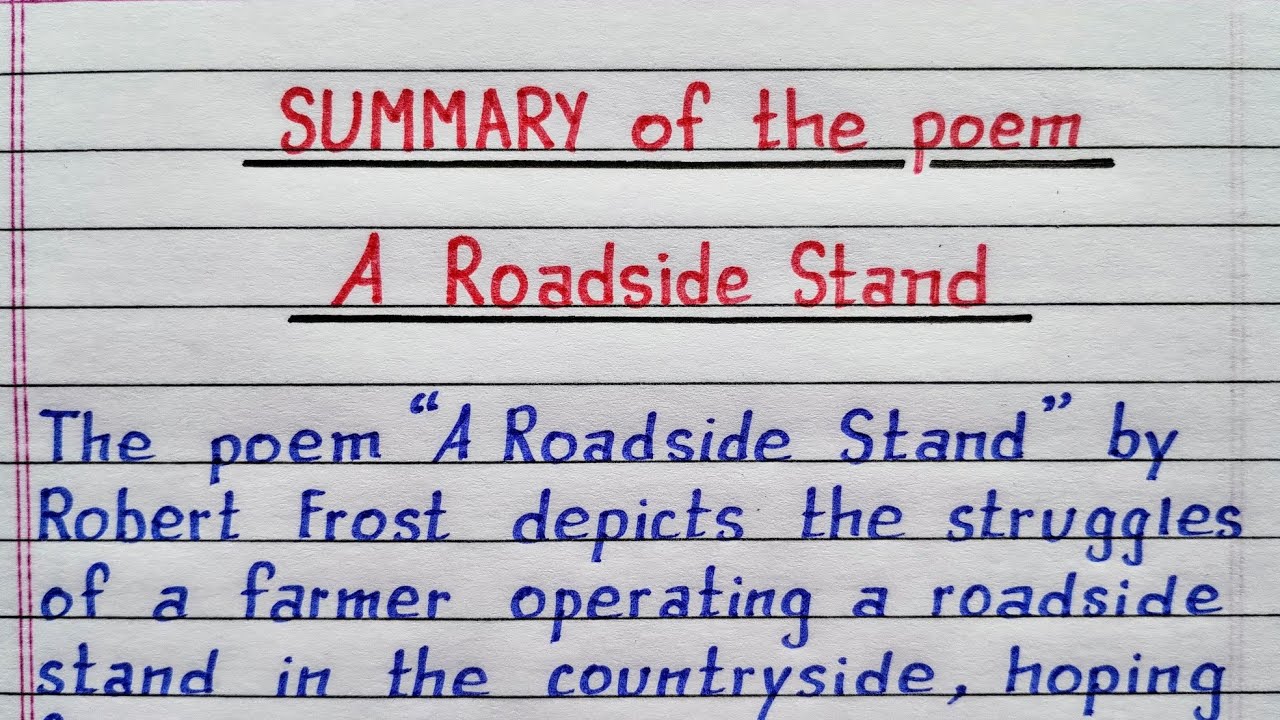 SUMMARY of the poem
A Roadside Stand
The poem “A Roadside Stand” by
Robert Frost depicts the struggles
of a farmer operating a roadside
stand in the countryside, hoping